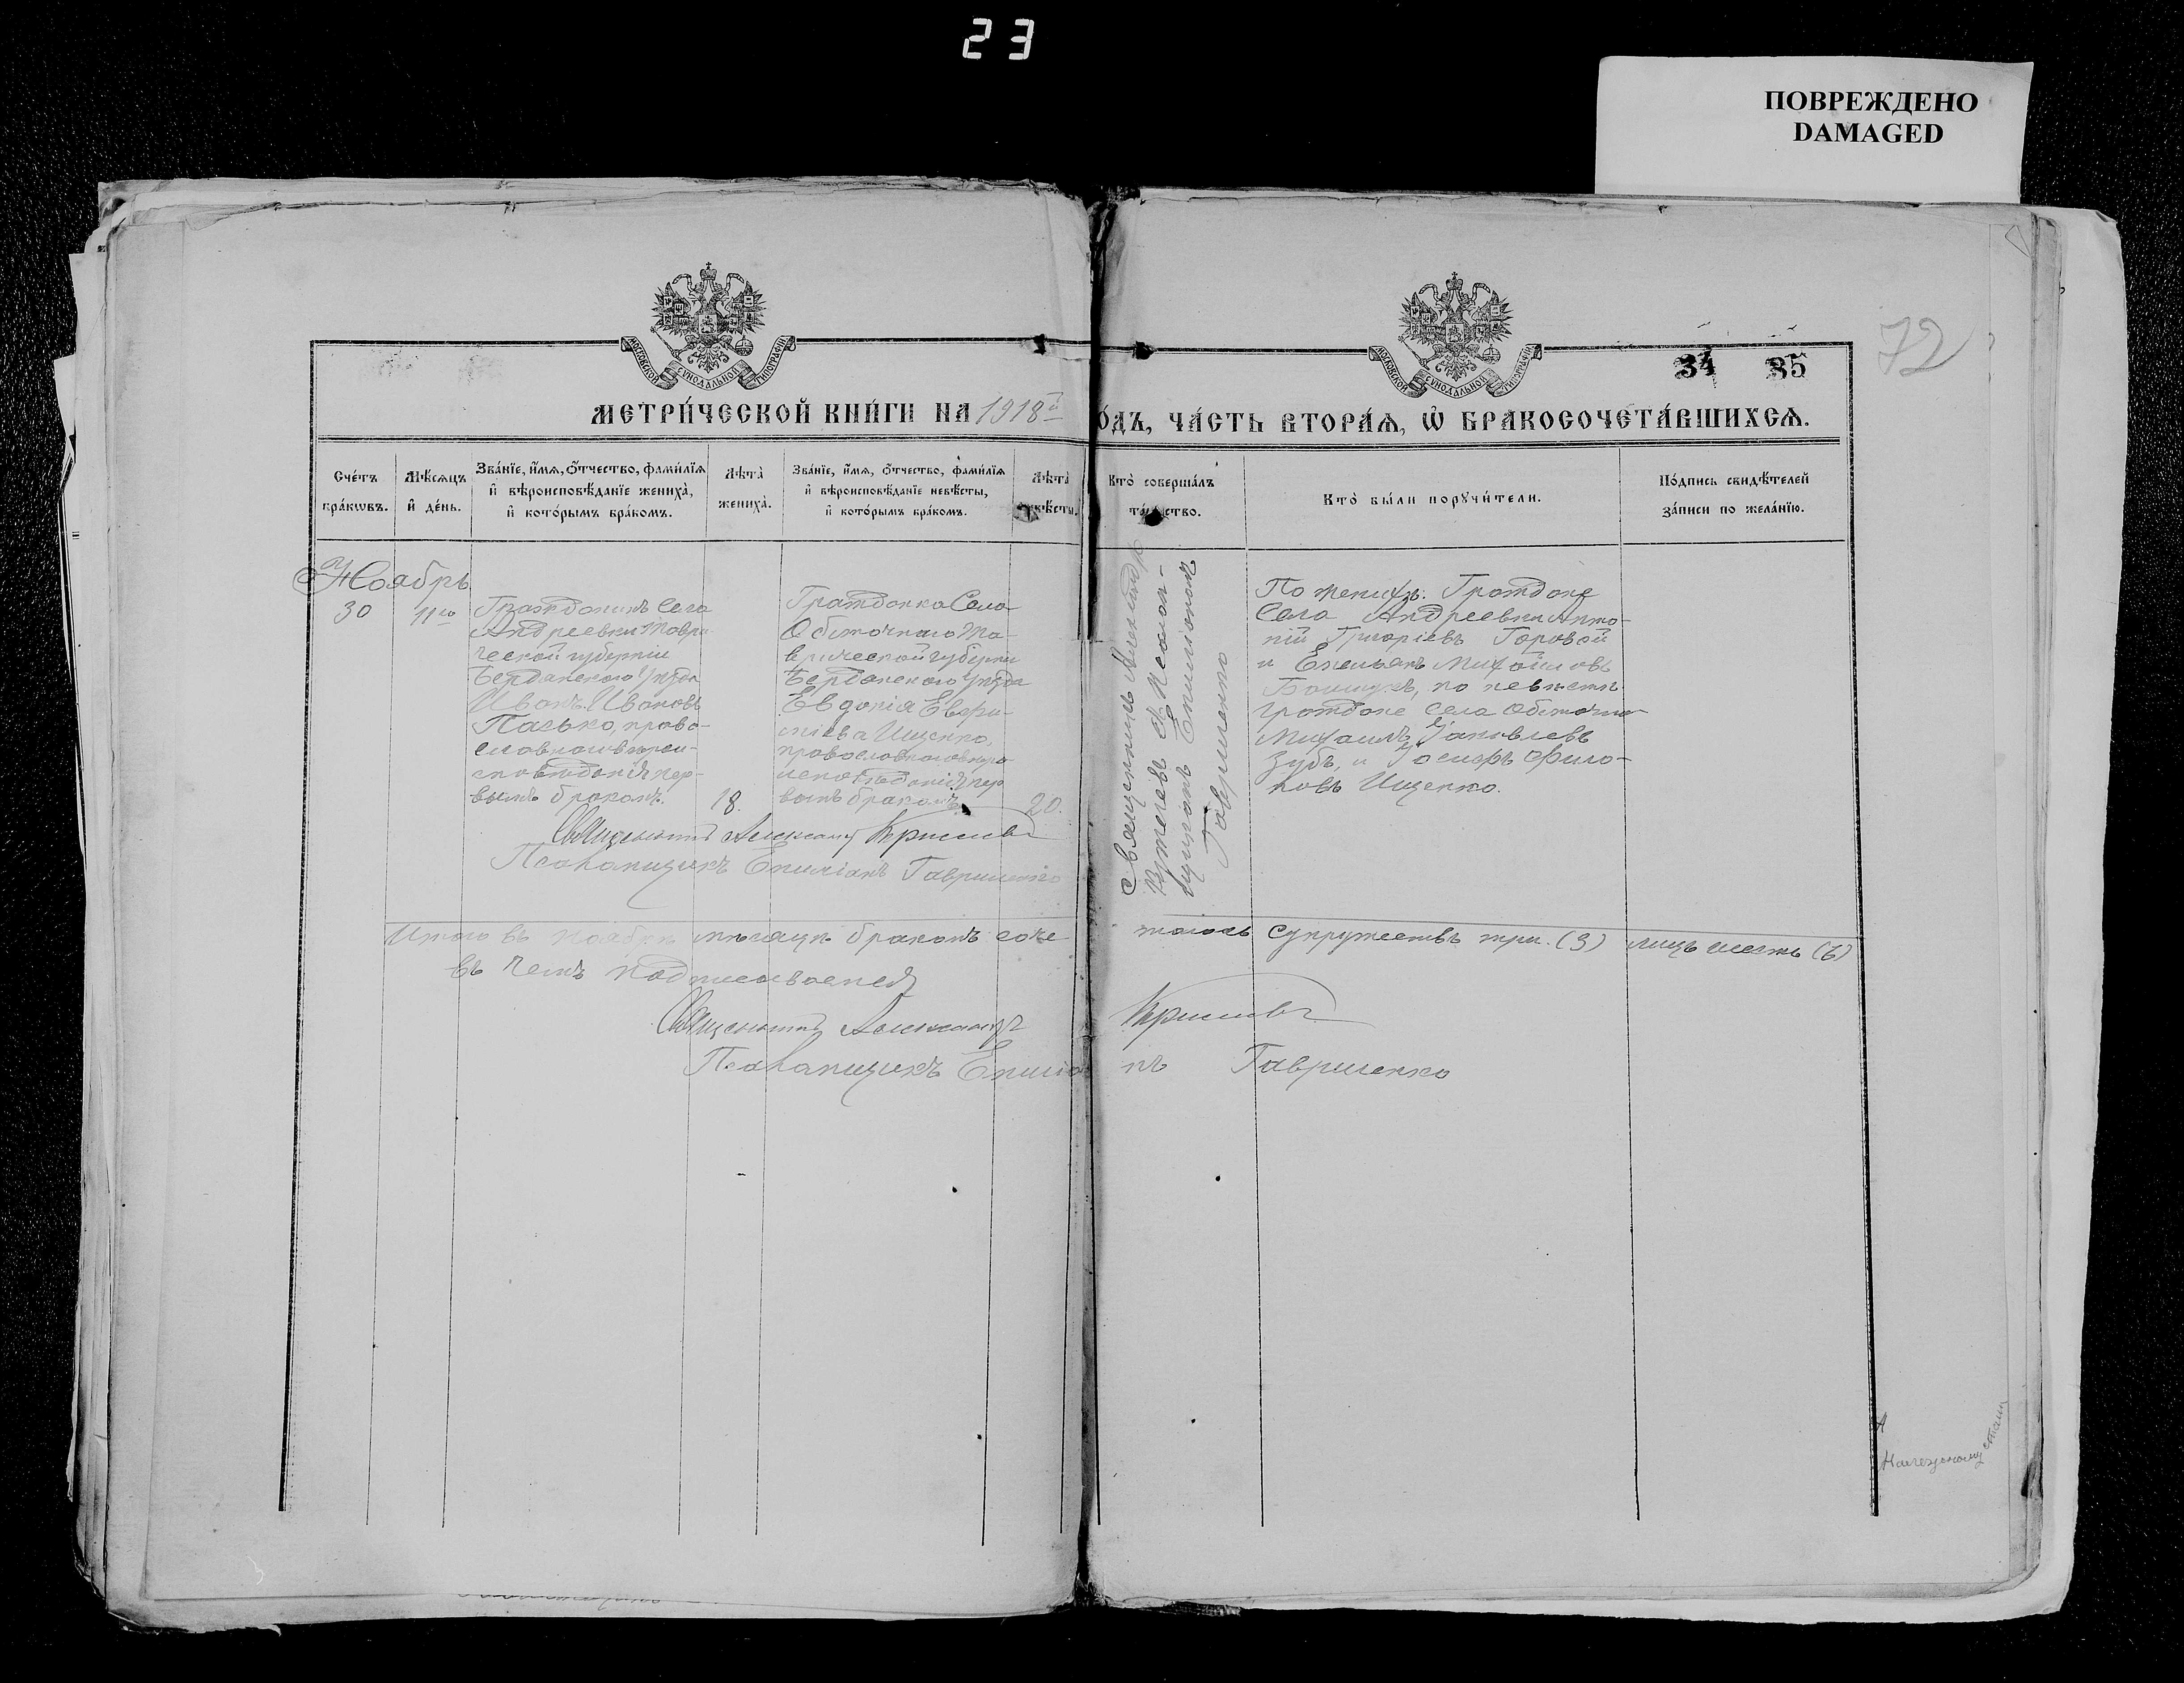 23
ПОВРЕЖДЕНО
DAMAGED
МОСКОВСКОЙ СѴНОДАЛЬНОЙ ТИПОГРАФІИ
МОСКОВСКОЙ СѴНОДАЛЬНОЙ ТИПОГРАФІИ
34 35
72
МЕТРИ́ЧЕСКОЙ КНИ́ГИ НА 1918й
ОДЪ, ЧА́СТЬ ВТОРА́Ѧ, Ѽ БРАКОСОЧЕТА́ВШИХСѦ.
Сче́тъ бра́кѡвъ.
Мѣ́сѧцъ и҆ де́нь.
Зва́нїе, и҆́мѧ, ѻ҆́тчество, фами́лїѧ
и҆ вѣроисповѣ́данїе жениха̀,
и҆ кото́рымъ бра́комъ.
Лѣ́та̀ жениха̀.
Зва́нїе, и҆́мѧ, ѻ҆́тчество, фами́лїѧ
и҆ вѣроисповѣ́данїе невѣ́сты,
и҆ кото́рымъ бра́комъ.
Лѣ́та̀
Кто̀ соверша́лъ
Кто̀ бы́ли порꙋчи́тели.
По́дпись свидѣ́телей
за́писи по жела́нїю.
Ноябрь
30
11го
Гражданинъ Села
Андреевки Таври-
ческой губерніи
Бердянского уѣзда
Иванъ Ивановъ
Пасько, право-
славного вѣрои-
сповѣданія пер-
вымъ бракомъ.
18.
Гражданка Села
Обиточного Та-
врической губерніи
Бердянского уѣзда
Евдокія
Ищенко,
православного вѣро
исповѣданія пер
вымъ бракомъ
20.
Священникъ Александръ
Псалом-
щикъ Емиліанъ
Гавриленко
По женихѣ: Граждане
Села Андреевки Анто-
ній Григоріевъ Горовой
и Емельянъ Михайловъ
по невѣстѣ
граждане села Обиточно-
Михаилъ Яковлевъ
Зубъ, и Іосифъ Фило-
новъ Ищенко.
Священникъ Александръ
Псаломщикъ Емиліанъ Гавриленко
Итого въ Ноябрѣ мѣсяцѣ бракомъ соче
талось супружествъ три. (3) лицъ шесть (6)
въ чемъ подписываемся
Священникъ Александръ
Псаломщикъ Емиліа
нъ Гавриленко